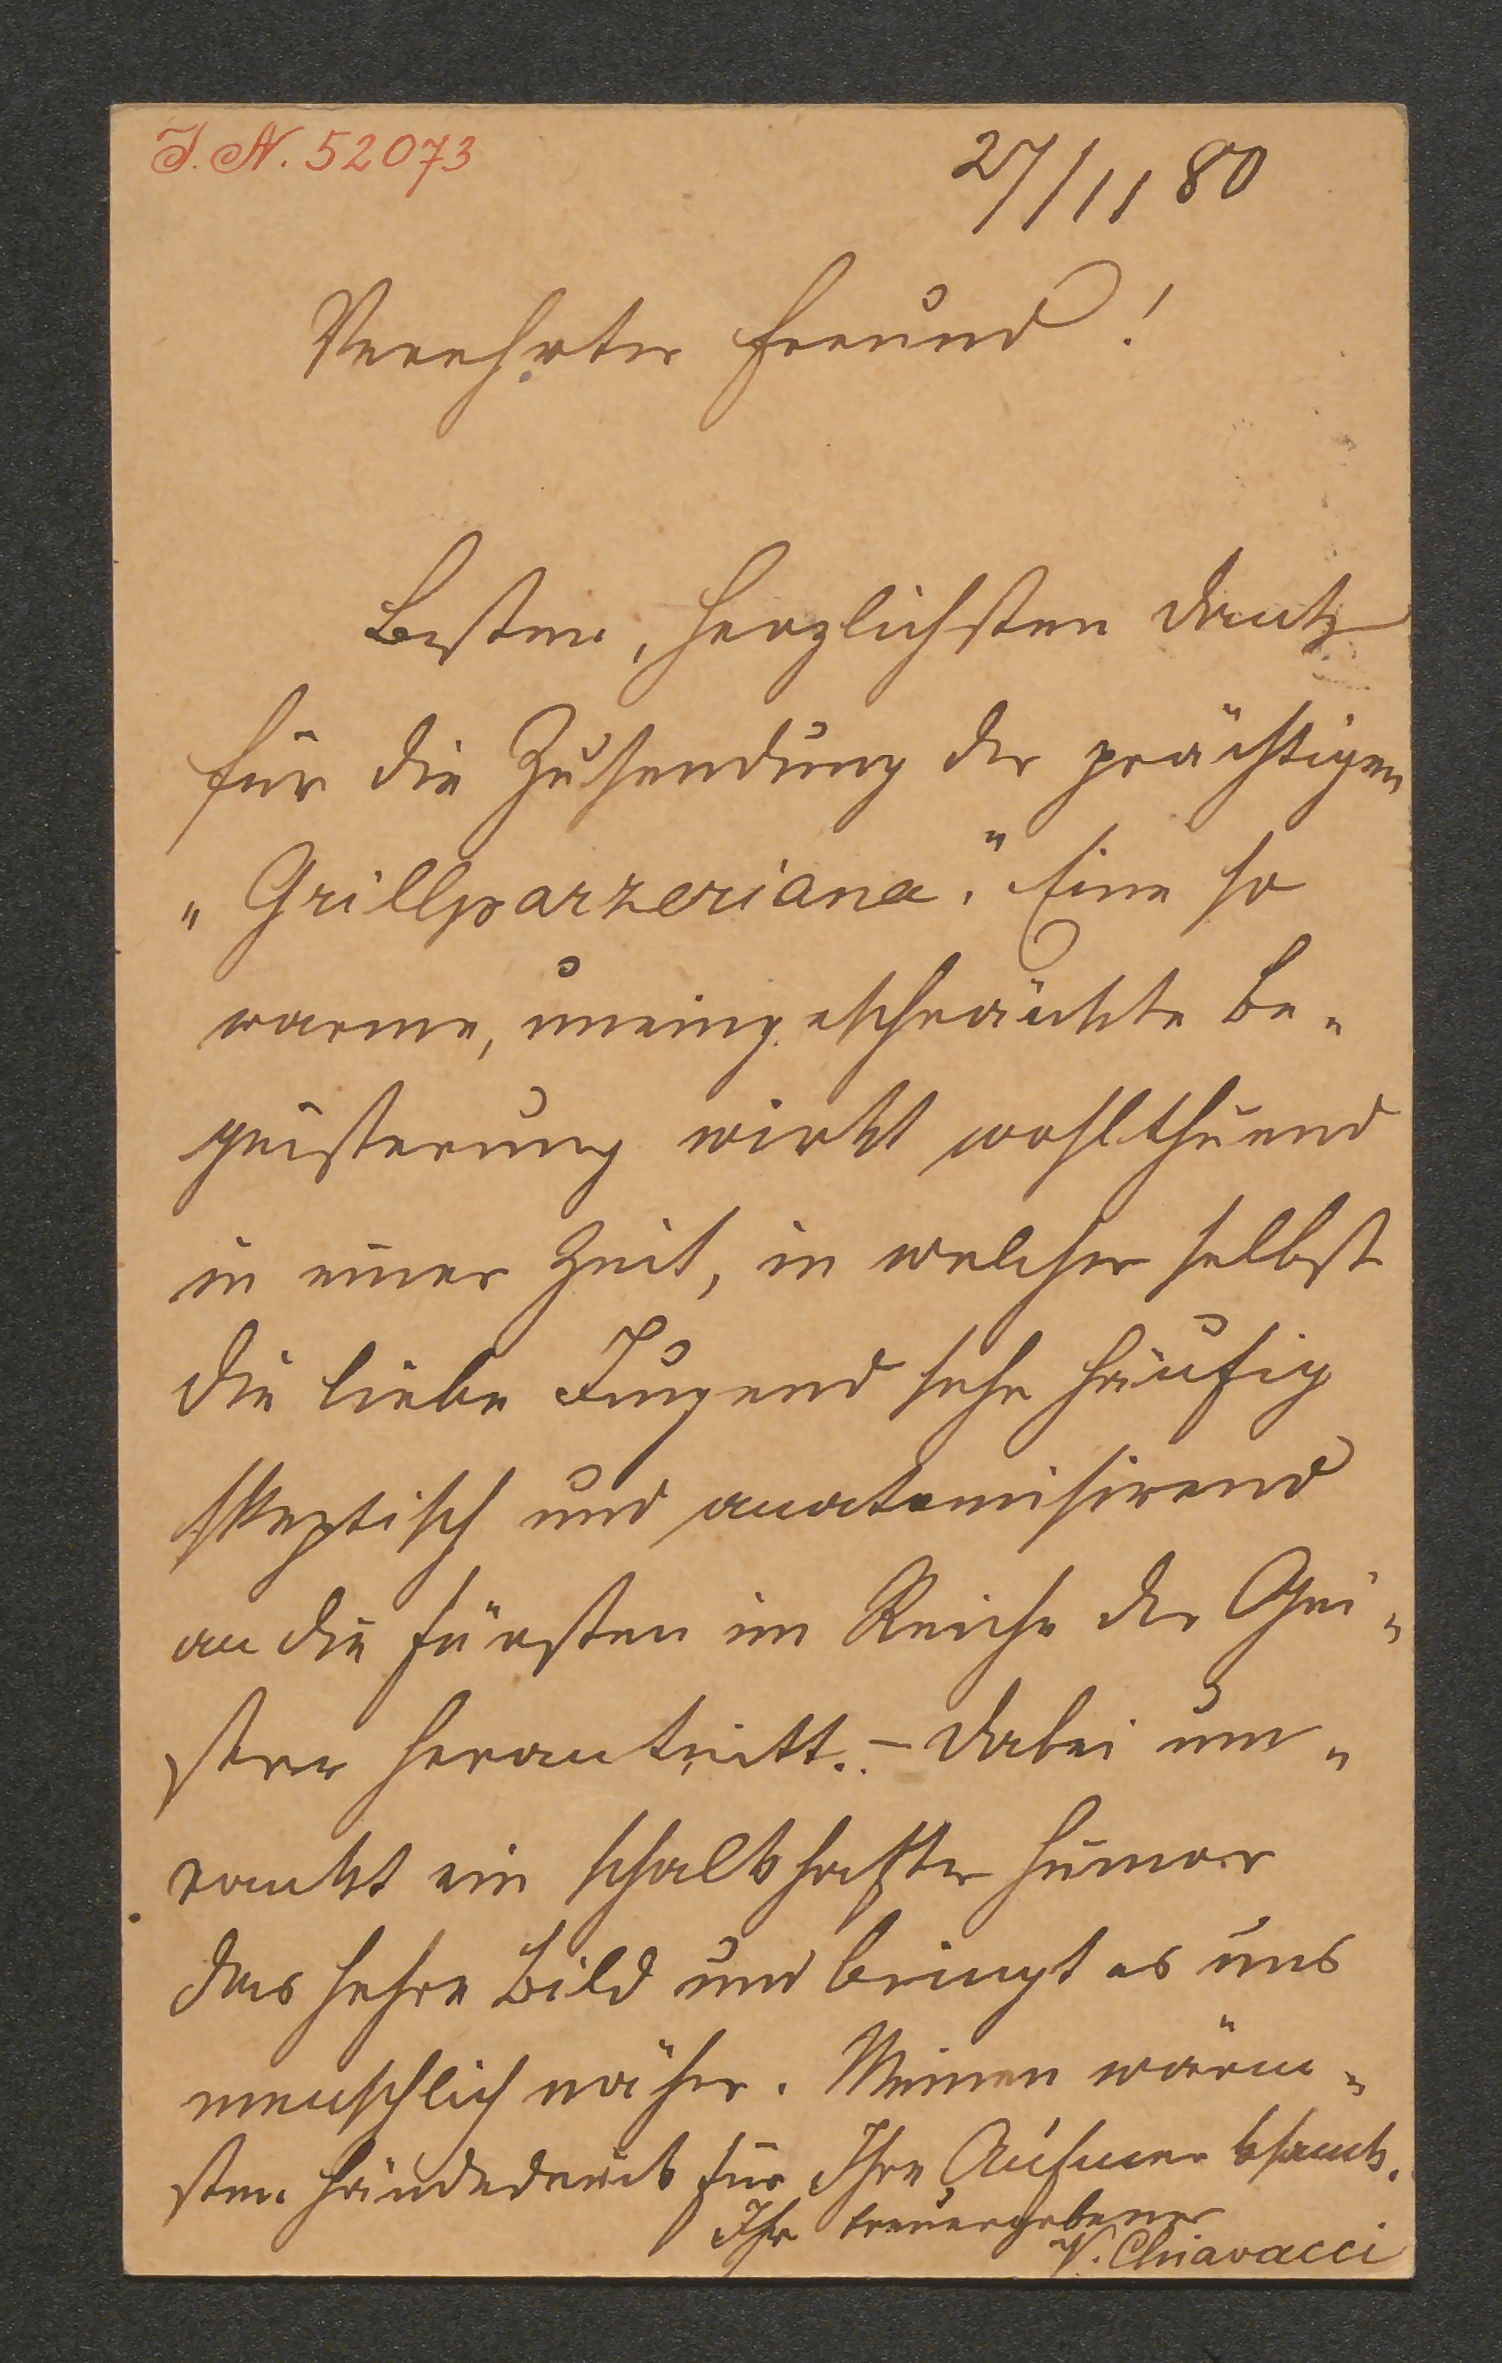 J. N. 52073
27/11 80
Verehrter Freund!
Besten, herzlichsten Dank
für die Zusendung der prächtigen
„Grillparzeriana." Eine so
warme, uneingeschränkte Be-
geisterung wirkt wohlthuend
in einer Zeit, in welcher selbst
die liebe Jugend sehr häufig
skeptisch und anatomisirend
an die Fürsten im Reiche der Gei-
ster herantritt. – Dabei um-
rankt ein schalkhafter Humor
das hehre Bild und bringt es uns
menschlich näher. Meinen wärm-
sten Händedruck für Ihre Aufmerksamk.
Ihr treuergebener
V. Chiavacci